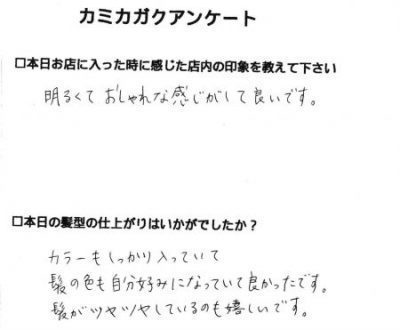 カミカガクアンケート
□本日お店に入った時に感じた店内の印象を教えて下さい
明るくておしゃれな感じがして良いです。
□本日の髪型の仕上がりはいかがでしたか？
カラーもしっかり入っていて
髪の色も自分好みになっていて良かったです。
髪がツヤツヤしているのも嬉しいです。